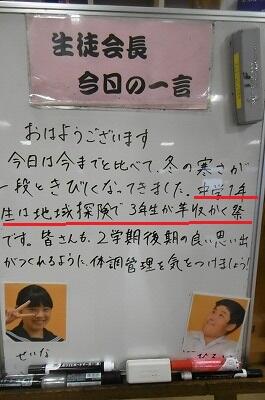 生徒会長
今日の一言
おはようございます
今日は今までと比べて、冬の寒さが
一段ときびしくなってきました。中学1年
生は地域探険で3年生が羊収かく祭
です。皆さんも、2学期後期の良い思い出
がつくれるように、体調管理を気をつけましょう!
せいな